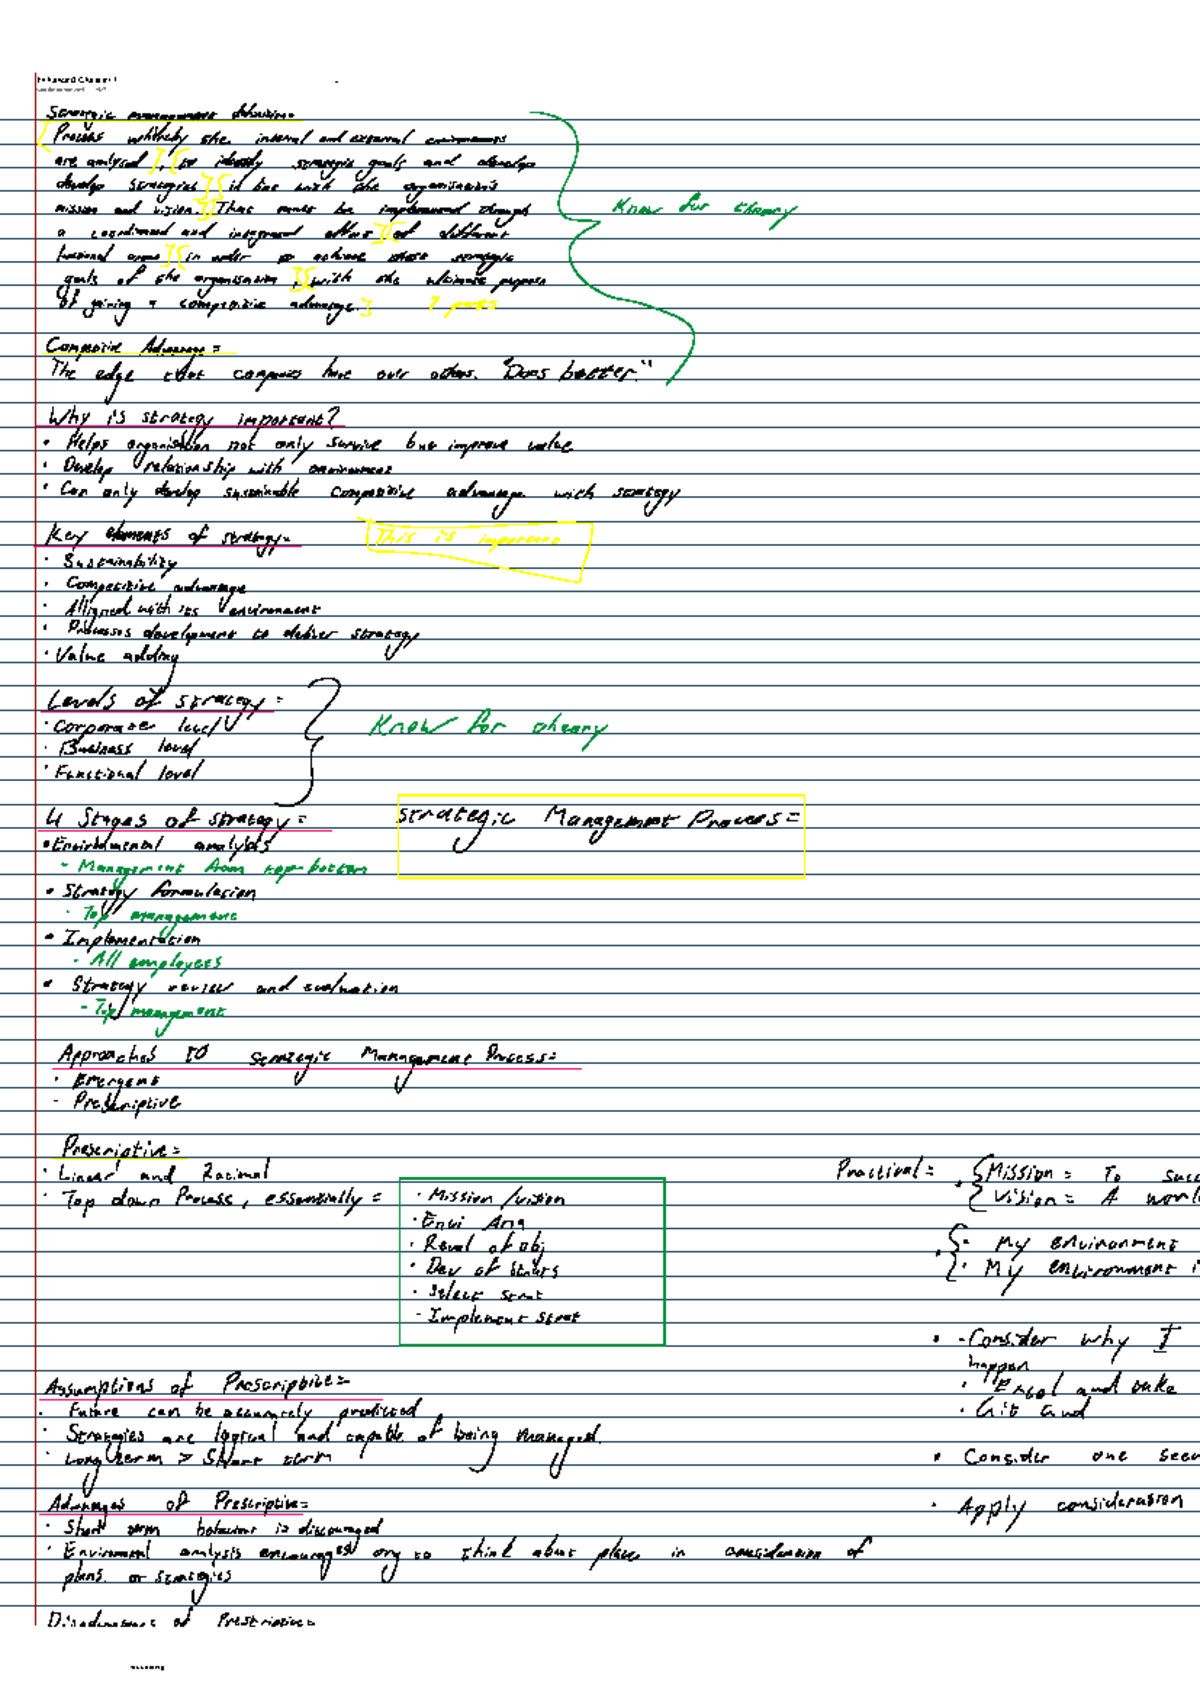 Strategic management definition=
Process whereby the internal and external environments
are analysed to identify strategic goals and develop
develop strategies in line with the organisation's
mission and vision. That must be implemented through
a coordinated and integrated at different
functional areas in order to achieve these strategic
goals of the organisation, with the ultimate purpose
of gaining a competitive advantage. 7 parts
Know for theory
Competitive Advantage =
The edge that companies have over others. "Does better."
Why is strategy important?
• Helps organisation not only survive but improve value
• Develop relationship with environment
• Can only develop sustainable competitive advantage with strategy
Key elements of strategy=
This is important
• Sustainability
• Competitive advantage
• Alligned with its environment
• Processes development to deliver strategy
• Value adding
Levels of strategy =
• Corporate level
• Business level
• Functional level
Know for theory
4 Stages of strategy =
Strategic Management Process=
• Envirnmental analysis
- Management from top-bottom
• Strategy formulation
- Top management
• Implementation
- All employees
• Strategy review and evaluation
- Top management
Approaches to Strategic Management Process=
• Emergent
- Prescriptive
Prescriptive=
• Linear and Rational
• Top down Process, essentially =
• Mission /vision
• Envi Ana
• Reval of obj
• Dev of strats
• Select strat
- Implement strat
Practical =
Mission = To succ
Vision = A worl
• My environment
• My environment i
• -Consider why I
happen
• Excel and
• Git and
• Consider one
• Apply consideration
Assumptions of Prescriptive=
• Future can be accurately predicted
• Strategies are logical and capable of being managed.
• Long term > Short term
Advantages of Prescriptive=
• Short term behaviour is discouraged
• Enviroment analysis encourages org to think about place in consideration of
plans or strategies
Disadvantages of Prescriptive=